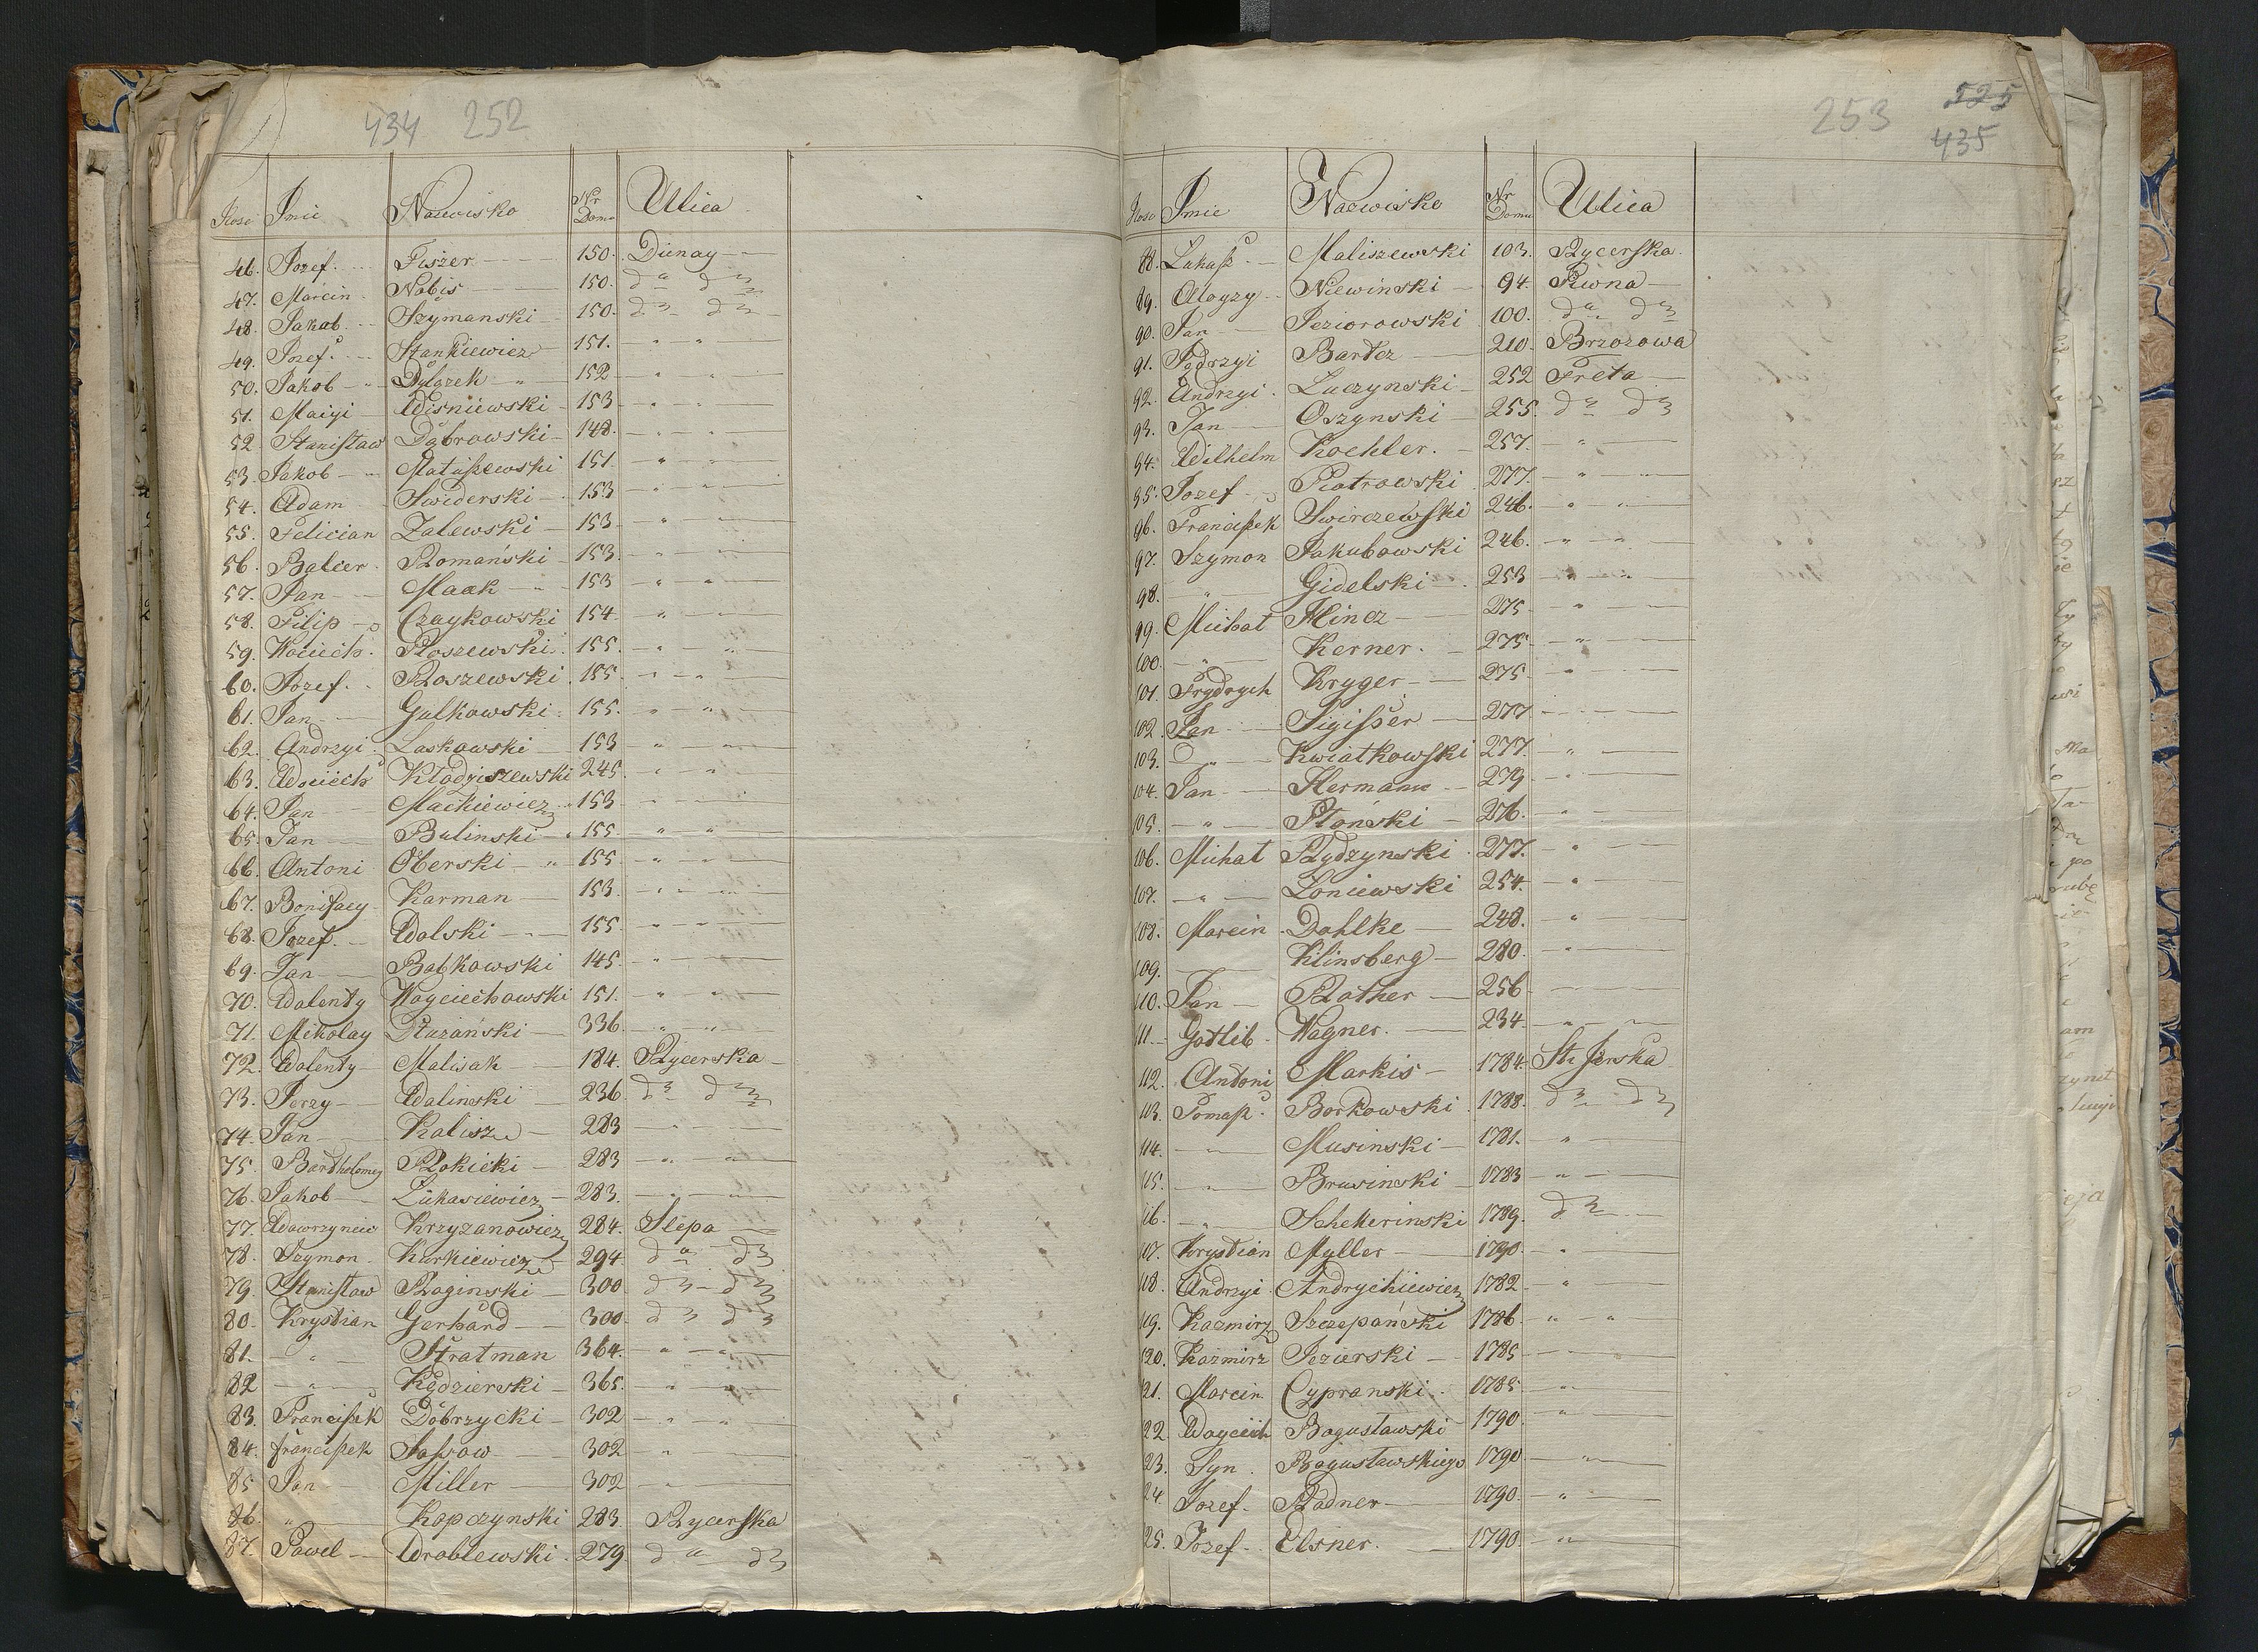 434 252
Ilosc Imie Nazwisko Nr Domu Ulica
46. Jozef. Fiszer 150. Dunay
47. Marcin Nobis 150. dto dto
48. Jakob Szymanski 150. dto dto
49. Jozef. Stankiewicz 151. " "
50. Jakob Dylązek 152 " "
51. Maiyi Wisniewski 153 " "
52. Stanisław Dąbrowski 148. " "
53. Jakob Matuszewski 151. " "
54. Adam Swiderski 153 " "
55. Felician Zalewski 153 " "
56. Balcer Romański 153. " "
57. Jan Maak 153 " "
58. Filip Czaykowski 154. " "
59. Woiciech. Roszewski 155. " "
60. Jozef. Roszewski 155. " "
61. Jan Gulkowski 155. " "
62. Andrzyi Laskowski 153 " "
63. Woiciech Kłodziszewski 245. " "
64. Jan Mackiewicz 153 " "
65. Jan Bulinski 155. " "
66. Antoni Oberski 155 " "
67. Bonifacy Karman 153. " "
68. Jozef. Wolski 155. " "
69. Jan Babkowski 145. " "
70. Walenty Woyciechowski 151. " "
71. Mikolay Płuzański 336. " "
72. Walenty Malisak 184. Rycerska
73. Jerzy Walinski 236. dto dto
74. Jan Kalisz 283 "
75. Bartholomey Rokicki 283 " "
76. Jakob Łukasiewicz 283. " "
77. Wawrzyniec Krzyzanowicz 284. Slepa
78. Szymon Kurkiewicz 294. dto dto
79. Stanisław Roginski 300 dto dto
80. Krystian Gerhard 300. dto dto
81. " Stratman 364. " "
82 " Kędzierski 365. " "
83. Franciszek Dobrzycki 302 " "
84. franciszek Sassow 302 "
85 Jan Miller 302 "
86. " Kopczynski 283. Rycerska
87. Pawel Wroblewski 279 dto dto
253 525
435
Ilosc Imie Nazwisko Nr Domu Ulica
88. Lukasz Maliszewski 103. Rycerska.
89. Aloyzy Niewinski 94. Piwna
90. Jan Jeziorowski 100. dto dto
91. Jędrzyi Bartcz 210. Brzozowa
92. Andrzyi Luczynski 252 Freta
93. Jan Oszynski 255. dto dto
94. Wilhelm Koehler. 257. "
95. Jozef Piotrowski 277. " "
96. Franciszek Swirczewski 246. " "
97. Szymon Jakubowski 246. " "
98. " Gidelski 253 " "
99. Michał Hincz 275 "
100. " Kerner. 275. "
101. Frydrych Kryger 275 "
102. Jan Sigisser 277
103. " Kwiatkowski 277. "
104. Jan Hermann 279 "
105. " Płoński 276. "
106. Michał Rydzynski 277. "
107. " Łoniewski 254. "
108. Marcin Dahlke 248. "
109. Klinsberg 280. "
110. Jan Rother 256
111. Gottlib Wagner. 234. "
112. Antoni Markis 1784.
113. Tomasz Borkowski 1788. dto dto
114. " Musinski 1781. "
115. " Brusinski 1783 "
116. " 1789. dto
117. Krystian Myller 1790. "
118. Andrzyi Andrychiewicz 1782 "
119. Kazmirz Szczepański 1786 " "
120. Kazmirz Jezierski 1785 "
121. Marcin Cypranski 1785 "
22. Woyciech Bogusławski 1790. "
23. Syn Bogusławskiego 1790 "
24. Jozef. Radner 1790. "
25. Jozef Elsner. 1790. "